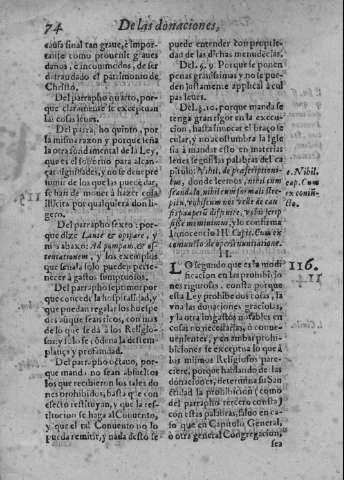 74 De las donaciones,
causa final tan graue, è impor-
tante como prouenir graues
danos, è incommodos, de ser
defraudado el patrimonio de
Christo.
Del parrapho quarto, por-
que claramente se exceptuan
las cosas leues.
Del parra, ho quinto, por
la misma razon y porque seria
la otra fondamental de la Ley,
que es el soborno para alcan-
çar dignidades, y no se deue pre
sumir de los que la puede dar,
se han de mouer à hazer cosa
illicita por qualquiera don li-
gero.
Del parrapho sexto; por-
que dize Lautè & opiparè, y
mas abaxo: Ad pompam, & os-
tentationem, y los exemplos
que señala solo pueden perte-
necer à gastos sumptuosos.
Del parrapho septimo por
que concede la hospitalidad, y
que puedan regalar los huespe
des aunque sean ricos, con mas
de lo que se dà à los Religio-
sos y solo se côdena la destem
plança y profanidad.
Del parrapho octauo, por-
que manda no sean absueltos
los que recibieron los tales do
nes prohibidos, hasta que con
efecto restituyan, y que la res-
titucion se haga al Conuento,
y que el tal Conuento no lo
pueda remitir, y nada desto se
puede entender con proprie-
dad de las dichas menudècias.
Del. §. 9. Porque se ponen
penas grauissimas y no se pue-
den justamente applicar à cul
pas leues.
Del. §. 10. porque manda se
tenga gran rigor en la execu-
cion, hasta inuocar el braço se
cular, y no acostumbra la Igle
sia à mandar esto en materias
leues segun las palabras del ca
pitulo: Nihil, de præscriptioni-
bus, donde leemos, nihil cum
scandalo, nihil cum formali stre-
pitu,
y lo confirma
Innocencio III. Capit. Cum ex
II.
LO segundo que es la modi
ficacion en las prohibicio
nes rigurosas, consta porque
esta Ley prohibe dos cosas, la
vna las donaciones graciosas,
y la otra los gastos notables en
cosas no necessarias, ò conue-
nientes, y en ambas prohi-
biciones se exceptua lo que à
los mismos Religiosos pare-
ciere, porque hablando de las
donaciones, determina su San
ctidad la prohibicion (como
del parrapho tercero consta)
con estas palabras, saluo en ca-
so que en Capitulo General,
ò otra general Congregacion,
sea
c. Nihil.
cap. Cum
116.